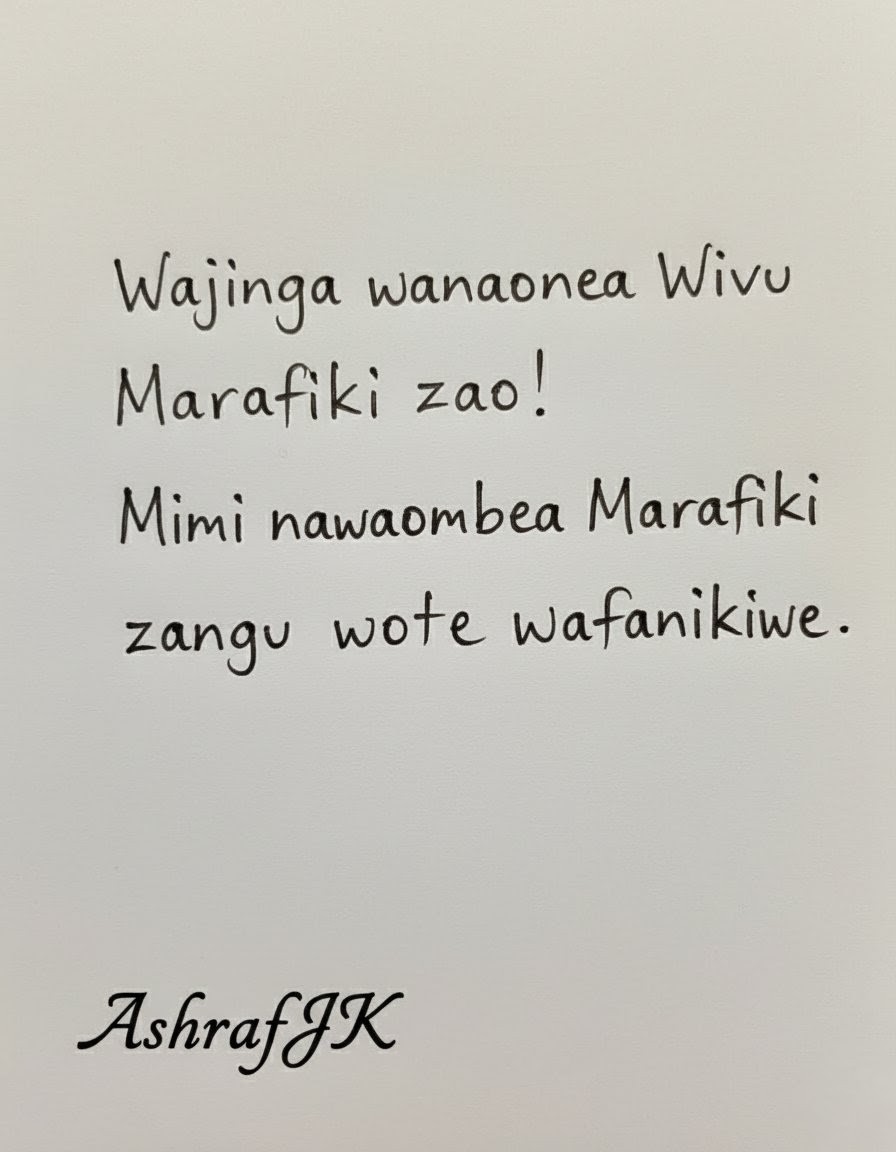 Wajinga wanaonea Wivu
Marafiki zao!
Mimi nawaombea Marafiki
zangu wote wafanikiwe.
AshrafJK